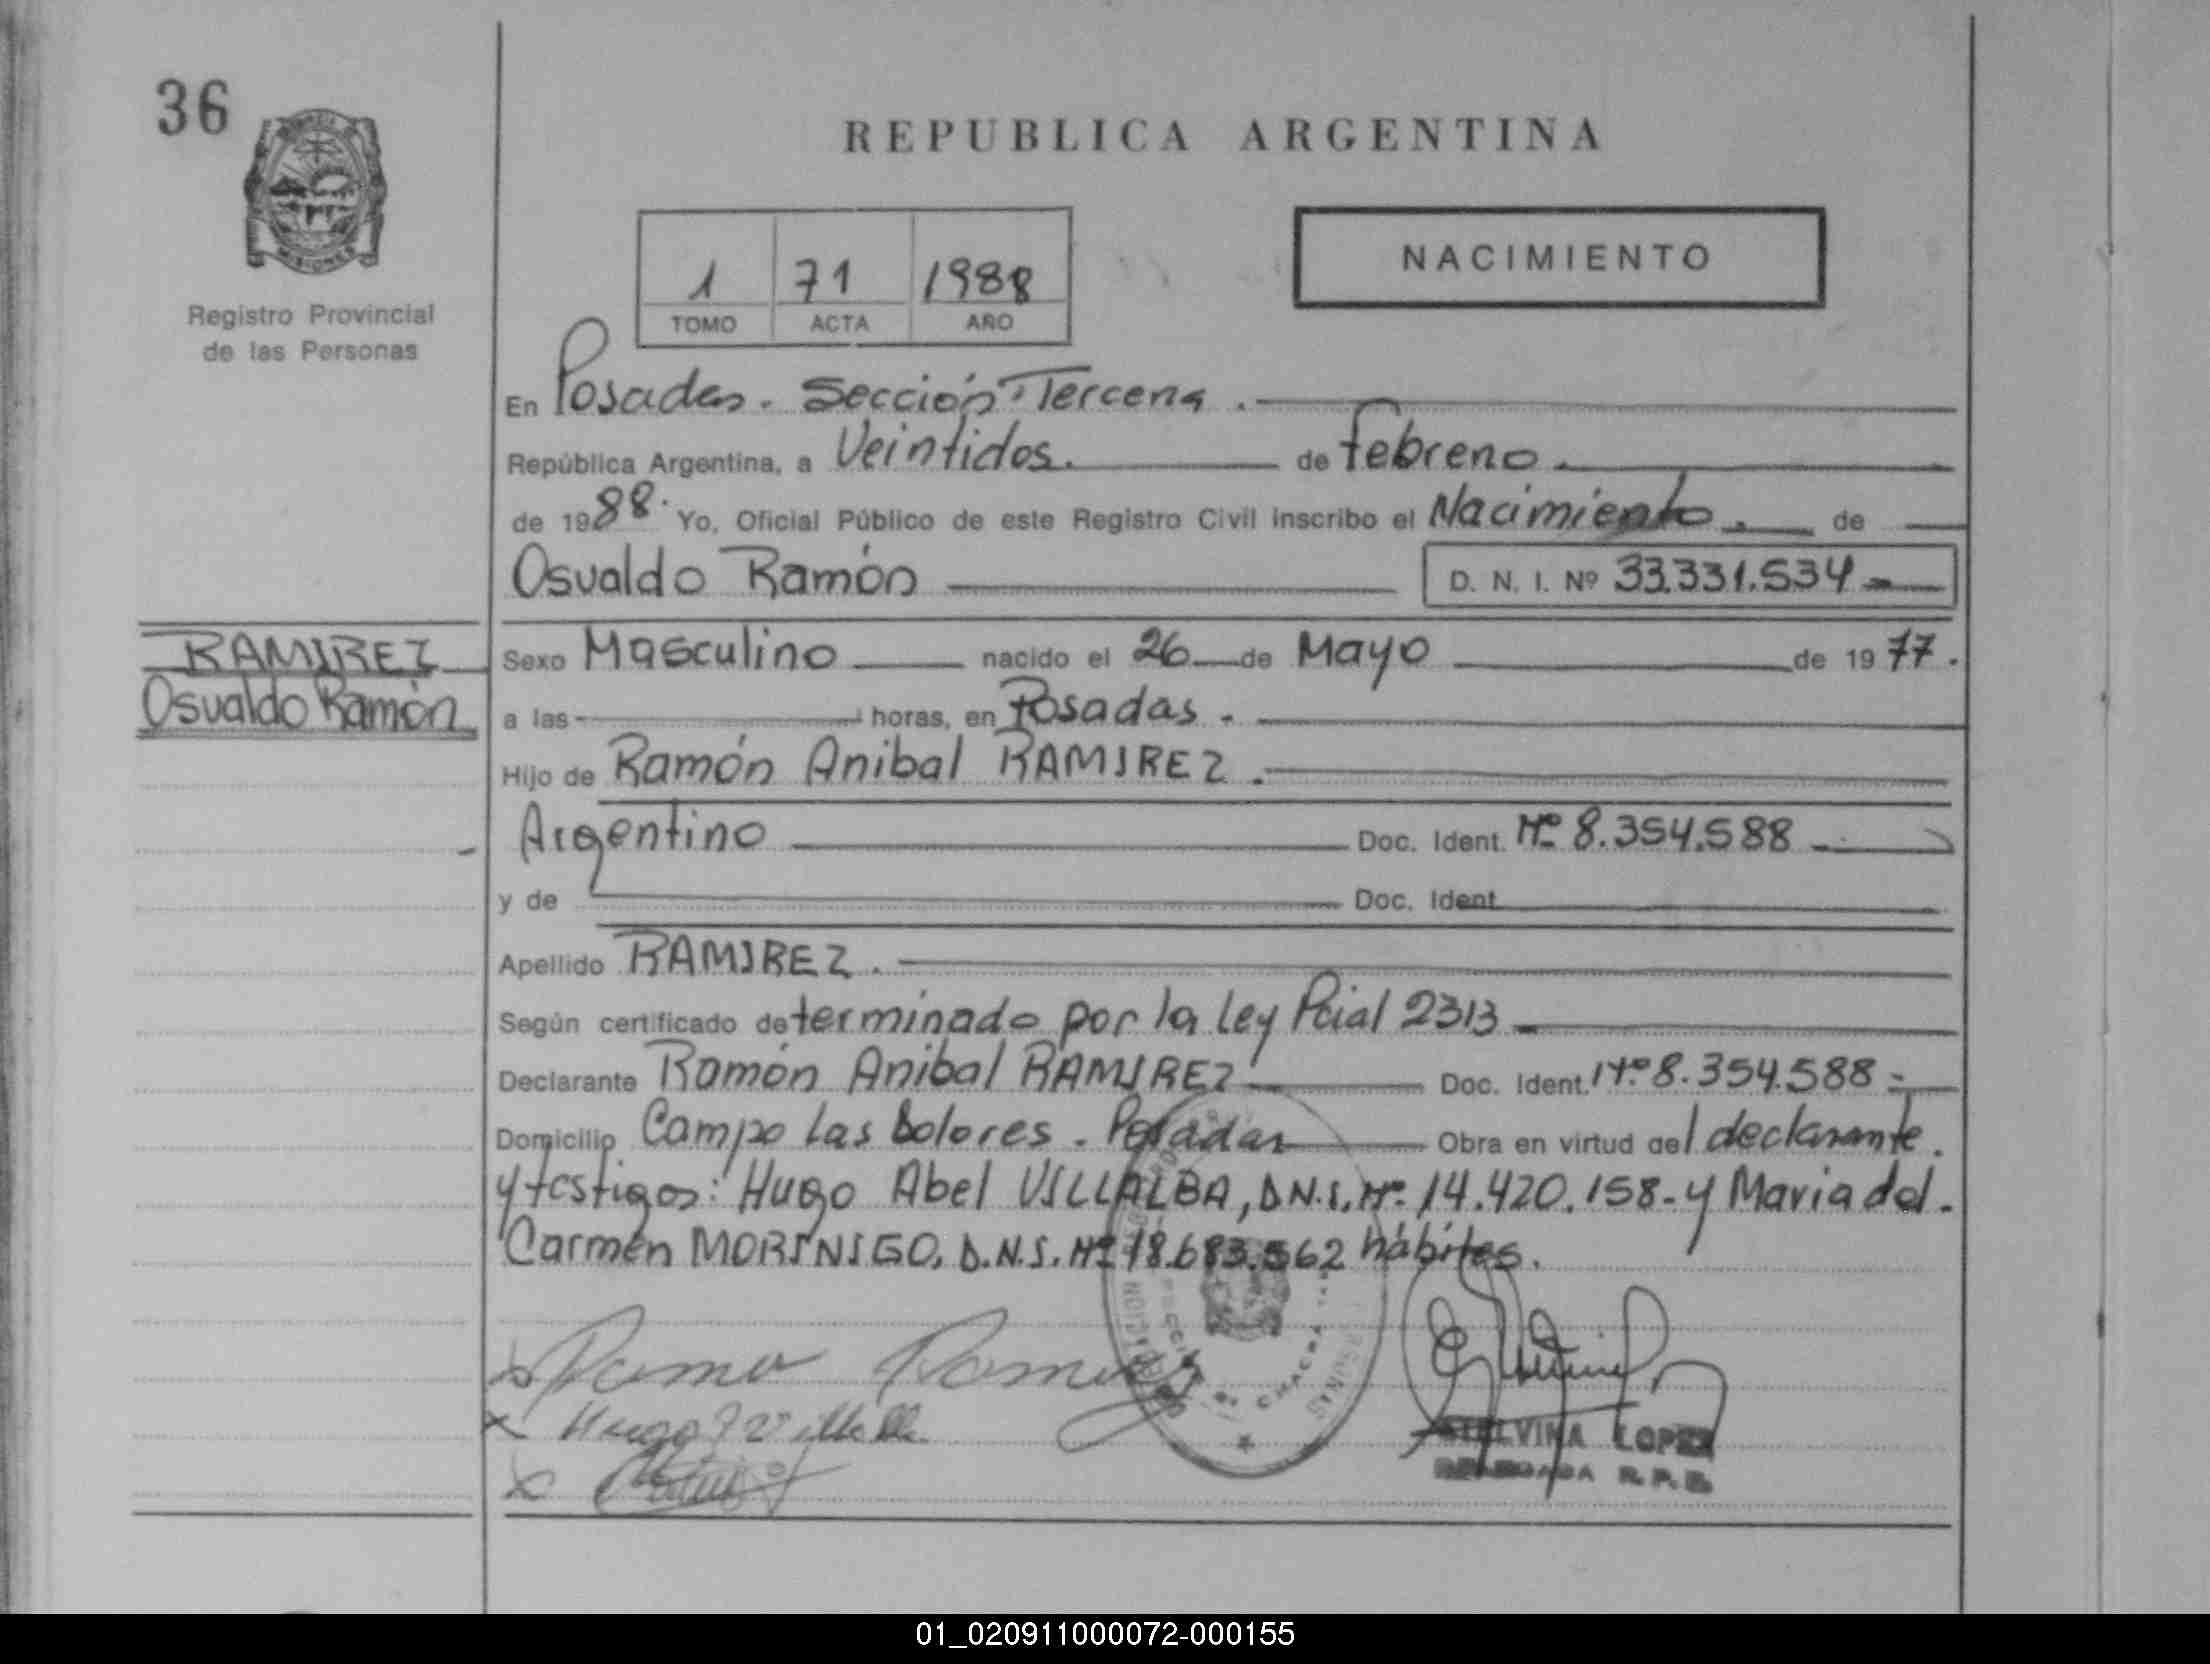 36
REPUBLICA ARGENTINA
MISIONES
Registro Provincial
de las Personas
1 71 1988
TOMO ACTA AÑO
NACIMIENTO
En Posadas. Sección Tercera.
República Argentina, a Veintidos. de febrero.
de 1988. Yo, Oficial Público de este Registro Civil inscribo el Nacimiento. de
Osvaldo Ramón D. N. I. Nº 33.331.534
RAMIREZ
Osvaldo Ramón
Sexo Masculino nacido el 26 de Mayo de 1977.
a las horas, en Posadas.
Hijo de Ramón Anibal RAMIREZ.
Argentino Doc. Ident. Nº 8.354.588
y de Doc. Ident.
Apellido RAMIREZ.
Según certificado determinado por la ley Pcial 2313
Declarante Ramón Anibal RAMIREZ Doc. Ident. Nº 8.354.588
Domicilio Campo Las Dolores. Posadas Obra en virtud del declarante.
y testigos: Hugo Abel VILLALBA, D.N.I. Nº 14.420.158- y Maria del.
Carmén MORINIGO, D.N.I. Nº 18.683.562 hábiles.
Hugo Villalba
CHACRA
LOPEZ
R. P. P.
01_020911000072-000155